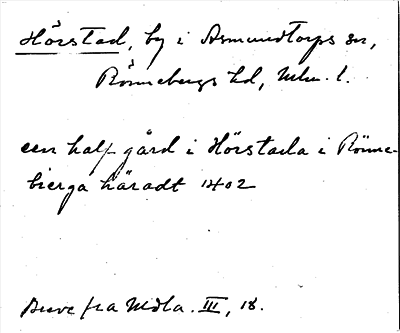 Hörstad, by i Asmundtorps sn,
Rönnebergs hd, Mlm. l.
een half gård i Hörstada i Rönne-
bierga häradt 1402
Breve fra Mdla. III, 18.